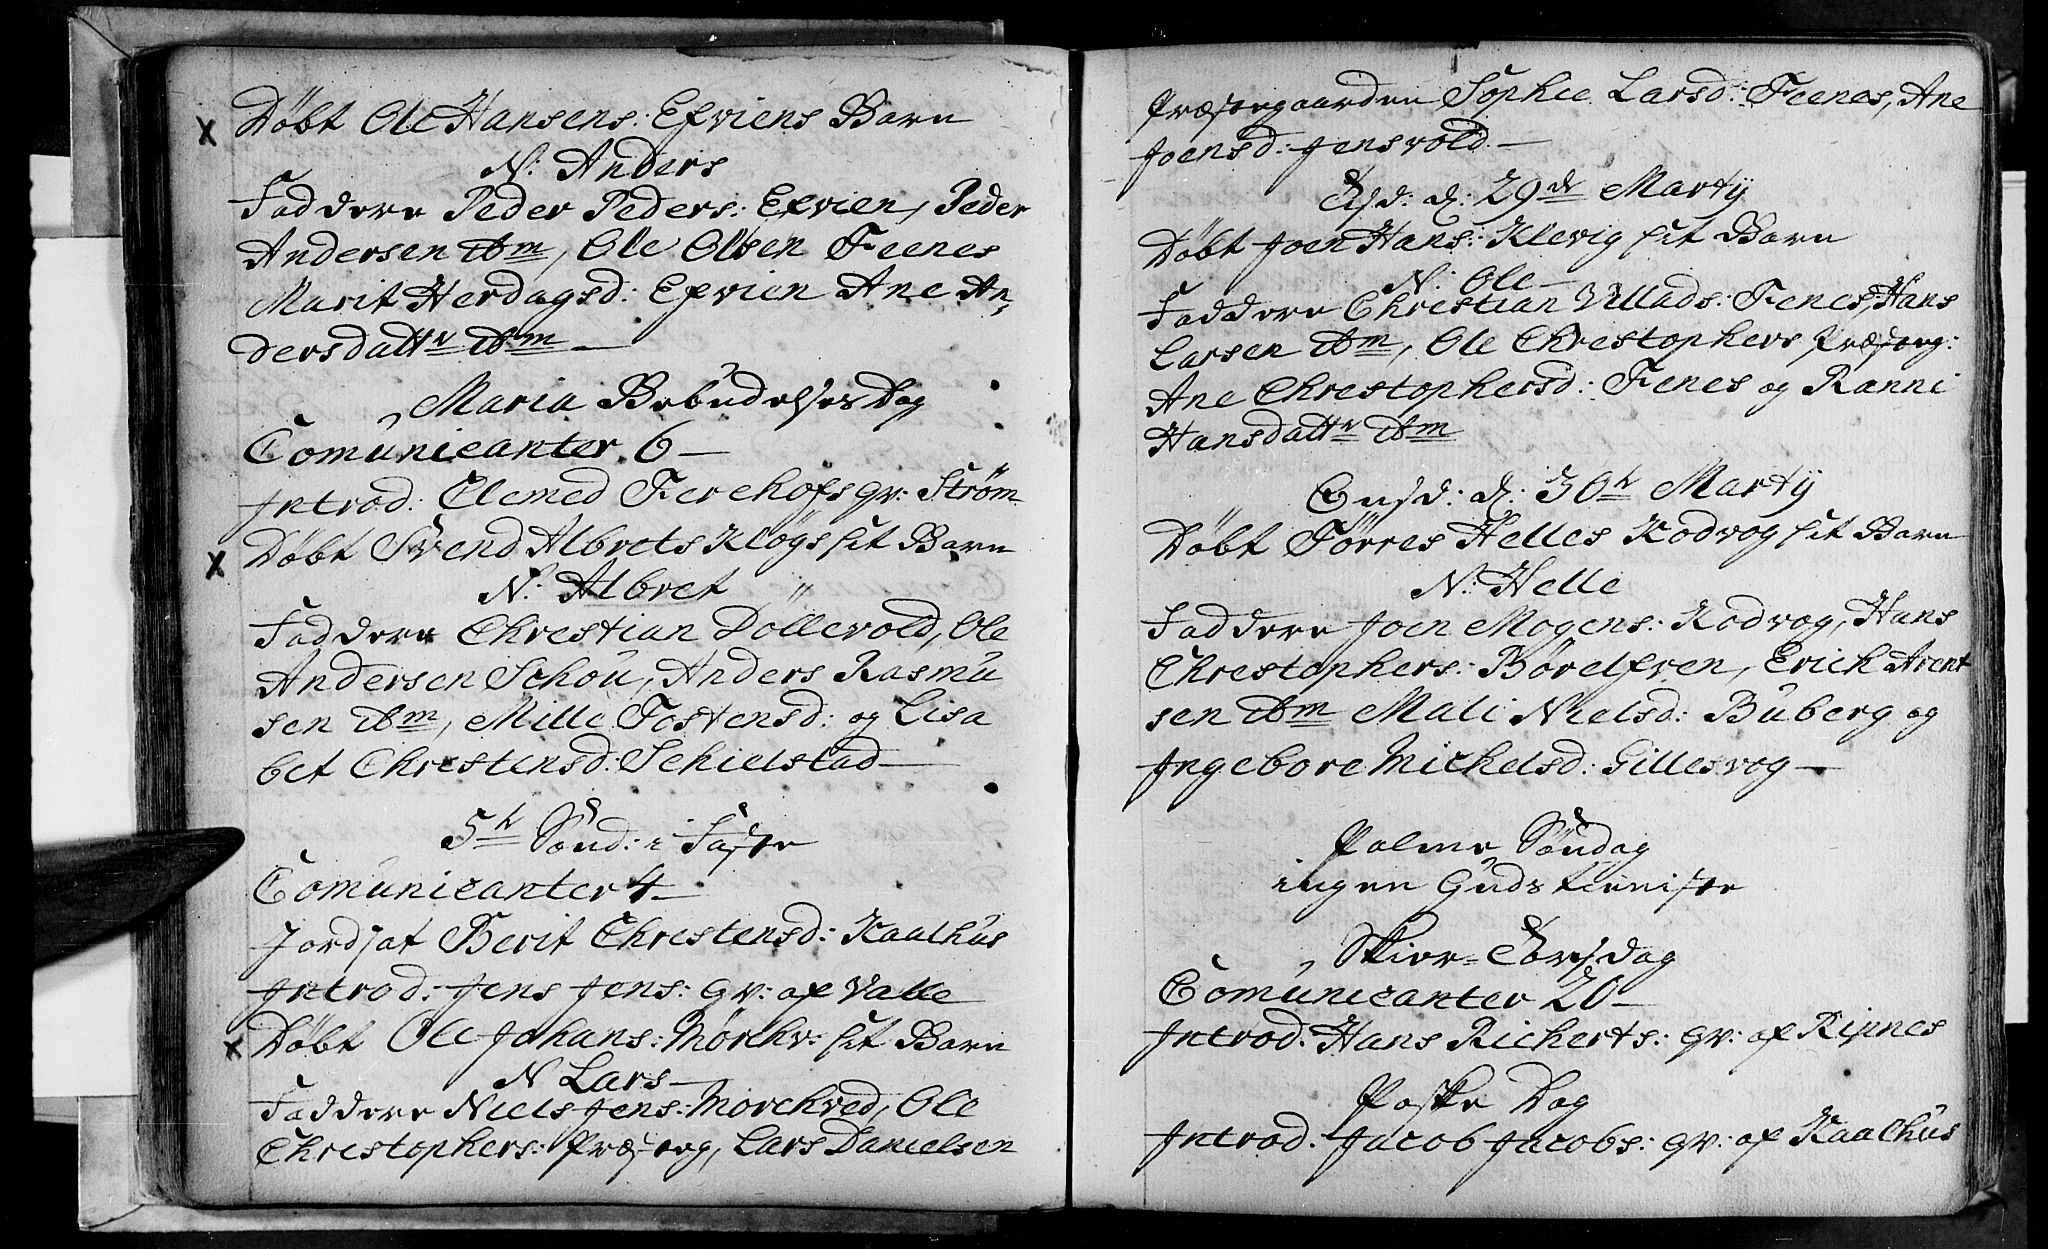 Döbt Ole Hansens Efviens Barn
N: Anders
Faddere Peder Peders: Efvien, Peder
Andersen ibm, Ole Olsen Feenes
Marit Herdagsd: Efvien Ane An,
dersdattr ibm
Maria Bebudelses Dag
Comunicanter 6
Introd: Clemed Ferchofs qv: Ström
Döbt Svend Albrets Klögs sit Barn
N: Albret
Faddere Christian Döllevold, Ole
Andersen Schou, Anders Rasmu
sen ibm, Mille Tostensd: og Lisa
bet Chrestensd: Schielstad
5te Sönd: i Faste
Comunicanter 4
Jordsat Berit Chrestensd: Kaalhus
Introd: Jens Jens: qv: af Valle
Döbt Ole Johans: Mörchv: sit Barn
N Lars
Faddere Niels Jens: Morchved, Ole
Chrestophers: Præsteg, Lars Danielsen
Præstegaarden Sophie Larsd: Feenes, Ane
Joensd: Jensvold
d: 29de Martij
Döbt Joen Hans: Klevig sit Barn
N: Ole
Faddere Christian Villads: Fenes, Hans
Larsen ibm, Ole Chrestophers Præsteg:
Ane Chrestophersd: Fenes og Ranni
Hansdattr ibm
Onsd: d: 30te Martij
Döbt Törres Helles Kodvog sit Barn
N: Helle
Faddere Joen Mogens: Kodvog, Hans
Chrestophers: Börelfven, Erich Arent
sen ibm Mali Nielsd: Buberg og
Ingebore Michelsd: Gillesvog
Palme Söndag
ingen Gudstieniste
Skier-Torsdag
Comunicanter 20
Introd: Hans Richerts: qv: af Rinnes
Paske Dag
Introd: Jacob Jacobs: qv: af Kaalhus